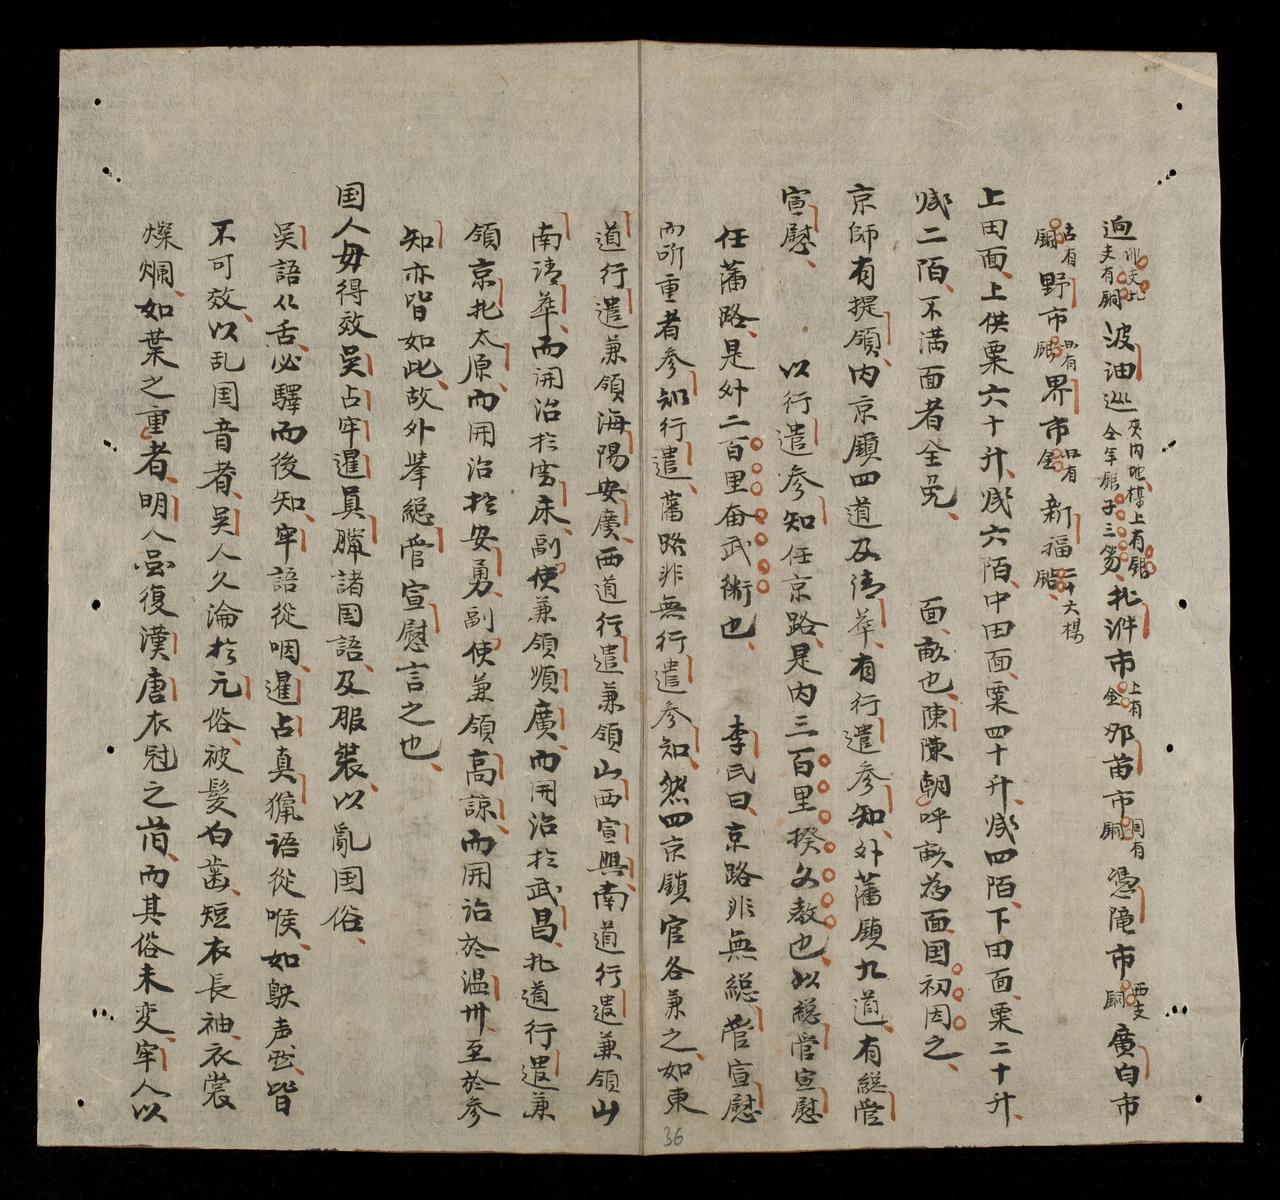 波油巡
上田面上供粟六十升減六陌中田面粟四十升減四陌下田面粟二十升
減二陌不滿面者全免 面畝也陳陳朝呼畝為面国初因之
京師有提領内京鎮四道及清華有行遣參知外藩鎮九道有総管
宣慰 以行遣參知任京路是内三百里揆文教也以総管宣慰
任藩路是外二百里奋武衛也 李氏曰京路非無総管宣慰
而所重者參知行遣藩路非無行遣參知然四京鎮官各兼之如東
道行遣兼領海陽安廣西道行遣兼領山西宣興南道行遣兼領山
南清華而開治於雲床副使兼領順廣而開治於武昌北道行遣兼
領京北太原而開治於安勇副使兼領高諒而開治於温州至於參
知亦皆如此故外挙総管宣慰言之也
国人毋得效吴占牢暹真臘諸国語及服裝以亂国俗
吴語以舌必驛而後知牢語從咽暹占真獵語從喉如鴃声然皆
不可效以乱国音者吴人久淪於元俗被髮白歯短衣長袖衣裳
燦爛如葉之重者明人虽復漢唐衣冠之旧而其俗未変牢人以